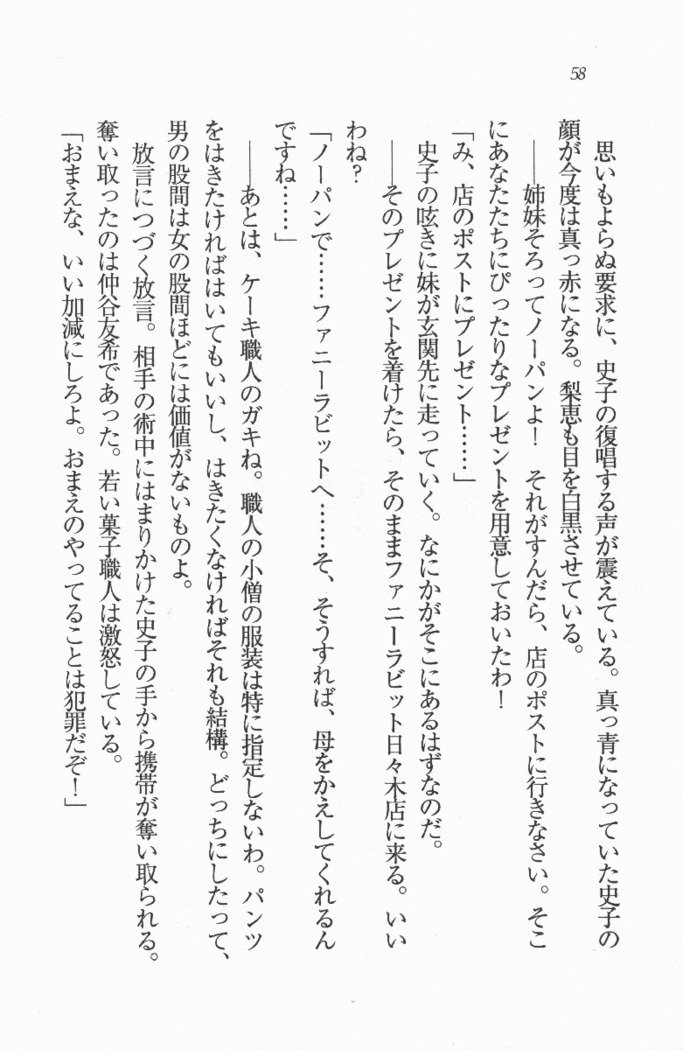 58
思いもよらぬ要求に、史子の復唱する声が震えている。真っ青になっていた史子の
顔が今度は真っ赤になる。梨恵も目を白黒させている。
――姉妹そろってノーパンよ！　それがすんだら、店のポストに行きなさい。そこ
にあなたたちにぴったりなプレゼントを用意しておいたわ！
「み、店のポストにプレゼント……」
史子の呟きに妹が玄関先に走っていく。なにかがそこにあるはずなのだ。
――そのプレゼントを着けたら、そのままファニーラビット日々木店に来る。いい
わね？
「ノーパンで……ファニーラビットへ……そ、そうすれば、母をかえしてくれるん
ですね……」
――あとは、ケーキ職人のガキね。職人の小僧の服装は特に指定しないわ。パンツ
をはきたければはいてもいいし、はきたくなければそれも結構。どっちにしたって、
男の股間は女の股間ほどには価値がないものよ。
放言につづく放言。相手の術中にはまりかけた史子の手から携帯が奪い取られる。
奪い取ったのは仲谷友希であった。若い菓子職人は激怒している。
「おまえな、いい加減にしろよ。おまえのやってることは犯罪だぞ！」